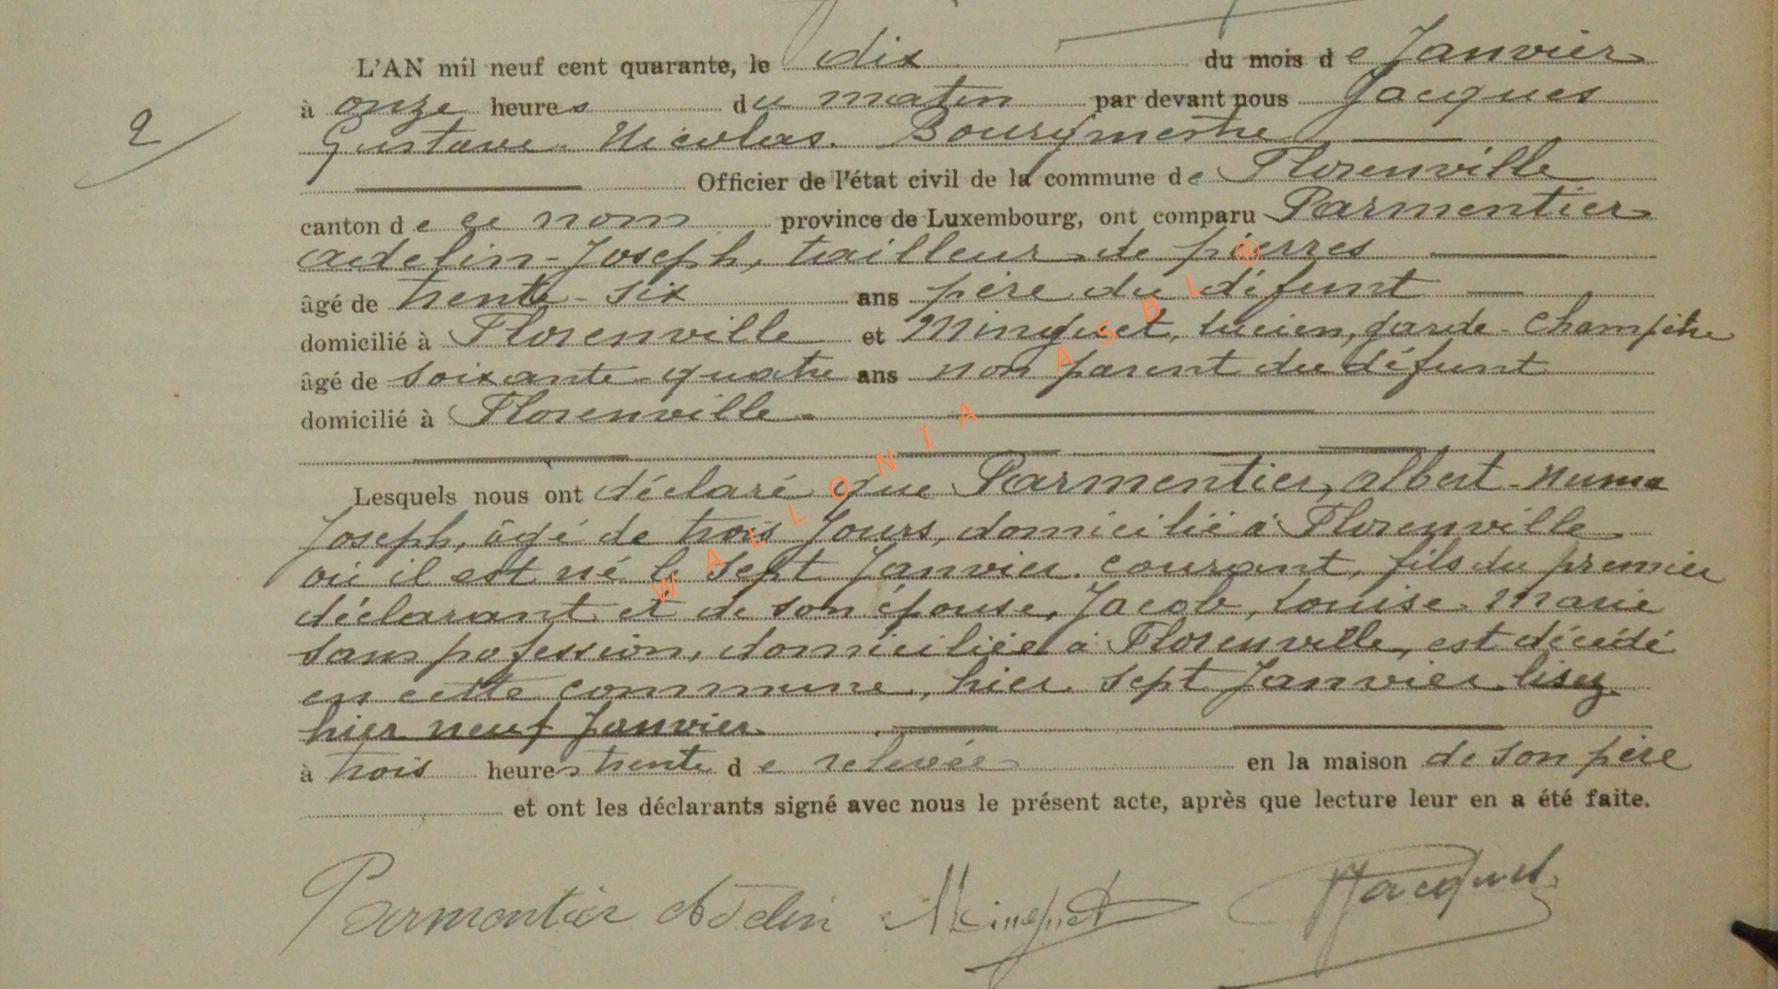 L'AN mil neuf cent quarante, le dix du mois de Janvier
à onze heures du matin par devant nous Jacques
2
Gustave Nicolas. Bourgmestre
Officier de l'état civil de la commune de Florenville
canton de ce nom province de Luxembourg, ont comparu Parmentier
Adelin-Joseph, tailleur de pierres
âgé de trente-six ans père du défunt
domicilié à Florenville et Minquet, Lucien, garde-champêtre
âgé de soixante-quatre ans non parent du défunt
domicilié à Florenville
Lesquels nous ont déclaré que Parmentier, Albert-Numa
Joseph, âgé de trois Jours, domicilié à Florenville
où il est né le sept Janvier courant, fils du premier
déclarant et de son épouse, Jacob, Louise Marie
sans pofession, domiciliée à Florenville, est décédé
en cette commune, hier sept Janvier lisez
hier neuf Janvier
à trois heures trente de relevée en la maison de son père
et ont les déclarants signé avec nous le présent acte, après que lecture leur en a été faite.
Parmentier Adelin Minquet Jacques
WALLONIA ASBL ®